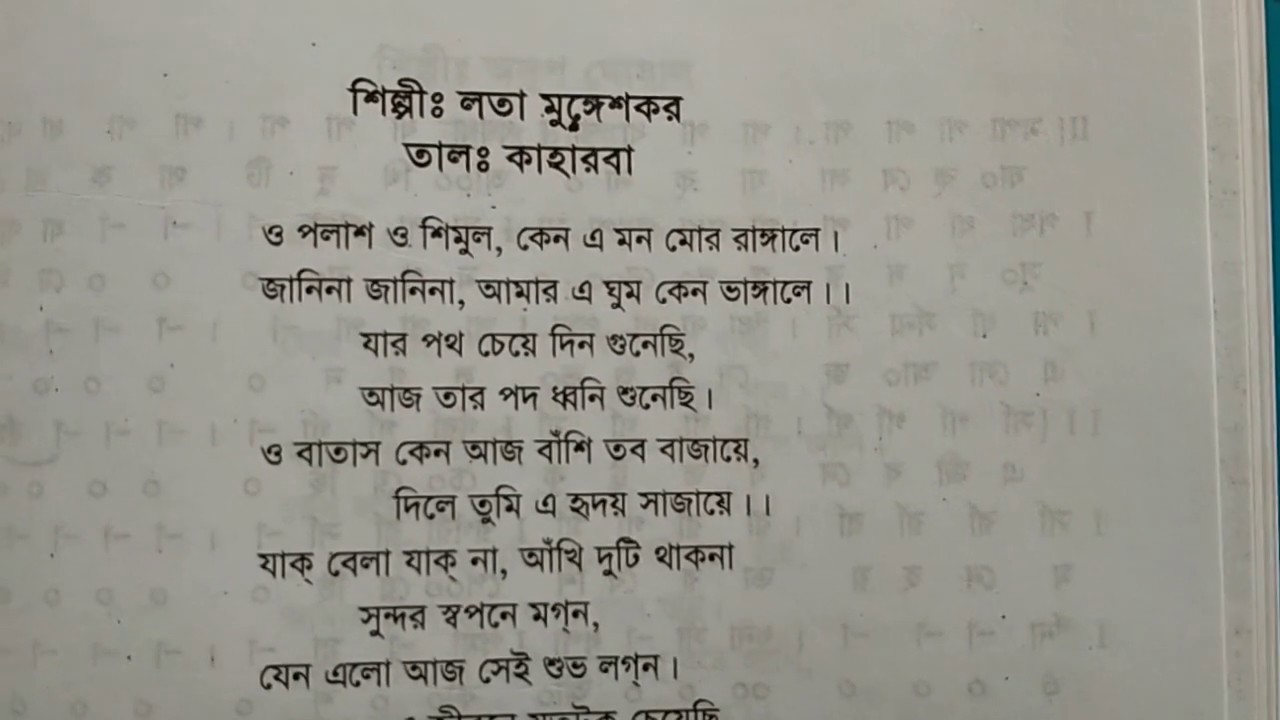 শিল্পীঃ লতা মুঙ্গেশকর
তালঃ কাহারবা
ও পলাশ ও শিমুল, কেন এ মন মোর রাঙ্গালে।
জানিনা জানিনা, আমার এ ঘুম কেন ভাঙ্গালে।।
যার পথ চেয়ে দিন গুনেছি,
আজ তার পদ ধ্বনি শুনেছি।
ও বাতাস কেন আজ বাঁশি তব বাজায়ে,
দিলে তুমি এ হৃদয় সাজায়ে।।
যাক্ বেলা যাক্ না, আঁখি দুটি থাকনা
সুন্দর স্বপনে মগ্‌ন,
যেন এলো আজ সেই শুভ লগ্‌ন।